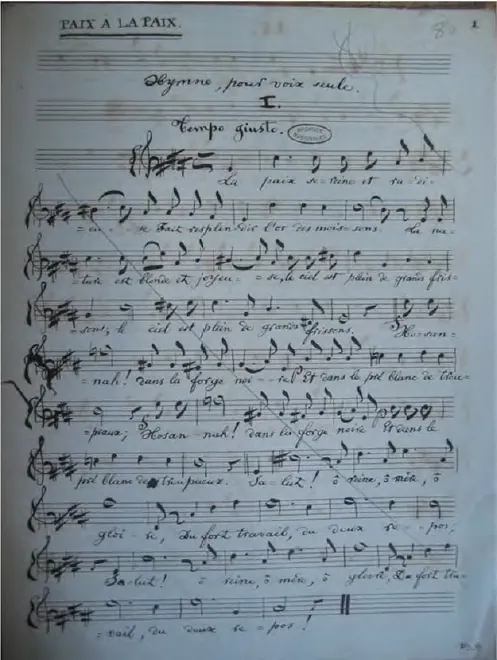 PAIX À LA PAIX.
80
1
Hymne, pour voix seule.
I.
Tempo giusto.
La paix se-reine et ra-di-
=eu- -se Fait resplen-dir l'or des mois-sons. La na-
=ture est blonde et joyeu- =se, le ciel est plein de grands fris-
=sons; le ciel est plein de grands frissons. Ho-san-
=nah! dans la forge noi-re! Et dans le pré blanc de trou-
=peaux; Hosan-nah! dans la forge noire Et dans le
pré blanc de troupeaux. Sa-lut! ô reine, ô mère, ô
gloi-re, Du fort travail, du doux re-pos;
Sa-lut! ô reine, ô mère, ô gloire, Du fort tra-
=vail, du doux re-pos!